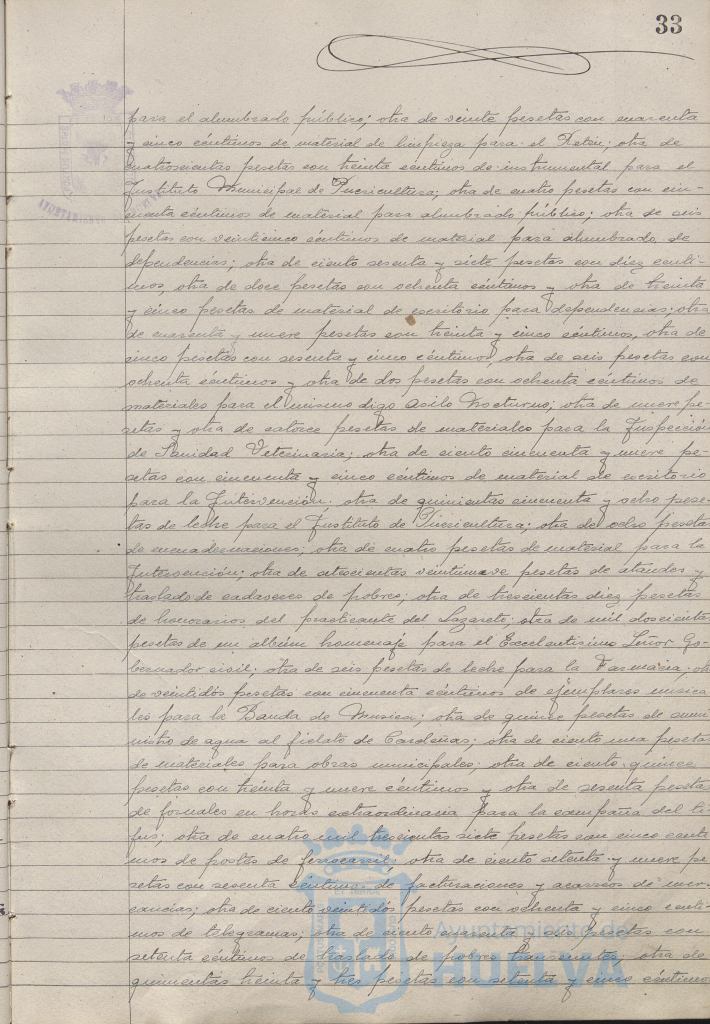 33
para el alumbrado público; otra de veinte pesetas con cuarenta
y cinco céntimos de material de limpieza para el Retén; otra de
cuatrocientas pesetas con treinta céntimos de instrumental para el
Instituto Municipal de Puericultura; otra de cuatro pesetas con cin-
cuenta céntimos de material para alumbrado público; otra de seis
pesetas con veinticinco céntimos de material para alumbrado de
dependencias; otra de ciento sesenta y siete pesetas con diez cénti-
mos, otra de doce pesetas con ochenta céntimos y otra de treinta
y cinco pesetas de material de escritorio para dependencias; otra
de cuarenta y nueve pesetas con treinta y cinco céntimos, otra de
cinco pesetas con sesenta y cinco céntimos, otra de seis pesetas con
ochenta céntimos y otra de dos pesetas con ochenta céntimos de
materiales para el mismo digo Asilo Nocturno; otra de nueve pe-
setas y otra de catorce pesetas de materiales para la Inspección
de Sanidad Veterinaria; otra de ciento cincuenta y nueve pe-
setas con cincuenta y cinco céntimos de material de escritorio
para la Intervención. otra de quinientas cincuenta y ocho pese-
tas de leche para el Instituto de Puericultura; otra de ocho pesetas
de encuadernaciones; otra de cuatro pesetas de material para la
Intervención; otra de doscientas veintinueve pesetas de ataúdes y
traslado de cadáveres de pobres; otra de trescientas diez pesetas
de honorarios del practicante del Lazareto; otra de mil doscientas
pesetas de un álbum homenaje para el Excelentísimo Señor Go-
bernador civil; otra de seis pesetas de leche para la Farmacia; otra
de veintidós pesetas con cincuenta céntimos de ejemplares musica
les para la Banda de Musica; otra de quince pesetas de sumi
nistro de agua al fielato de Cardeñas; otra de ciento una pesetas
de materiales para obras municipales; otra de ciento quince
pesetas con treinta y nueve céntimos y otra de sesenta pesetas
de jornales en horas extraordinaria para la campaña del ti
fus; otra de cuatro mil trescientas siete pesetas con cinco cénti
mos de portes de ferrocarril; otra de ciento setenta y nueve pe
setas con sesenta céntimos de facturaciones y acarreos de mer-
cancías; otra de ciento veintidós pesetas con ochenta y cinco cénti-
mos de telegramas; otra de ciento cuarenta y seis pesetas con
setenta céntimos de traslado de pobres transeuntes, otra de
quinientas treinta y tres pesetas con setenta y cinco céntimos
Ayuntamiento de
HUELVA